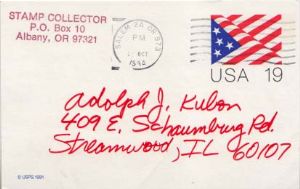 STAMP COLLECTOR
P.O. Box 10
Albany, OR 97321
SALEM, OR 973
PM
OCT
USA 19
Adolph J. Kulon
409 E. Schaumburg Rd.
Streamwood, IL 60107
© USPS 1991